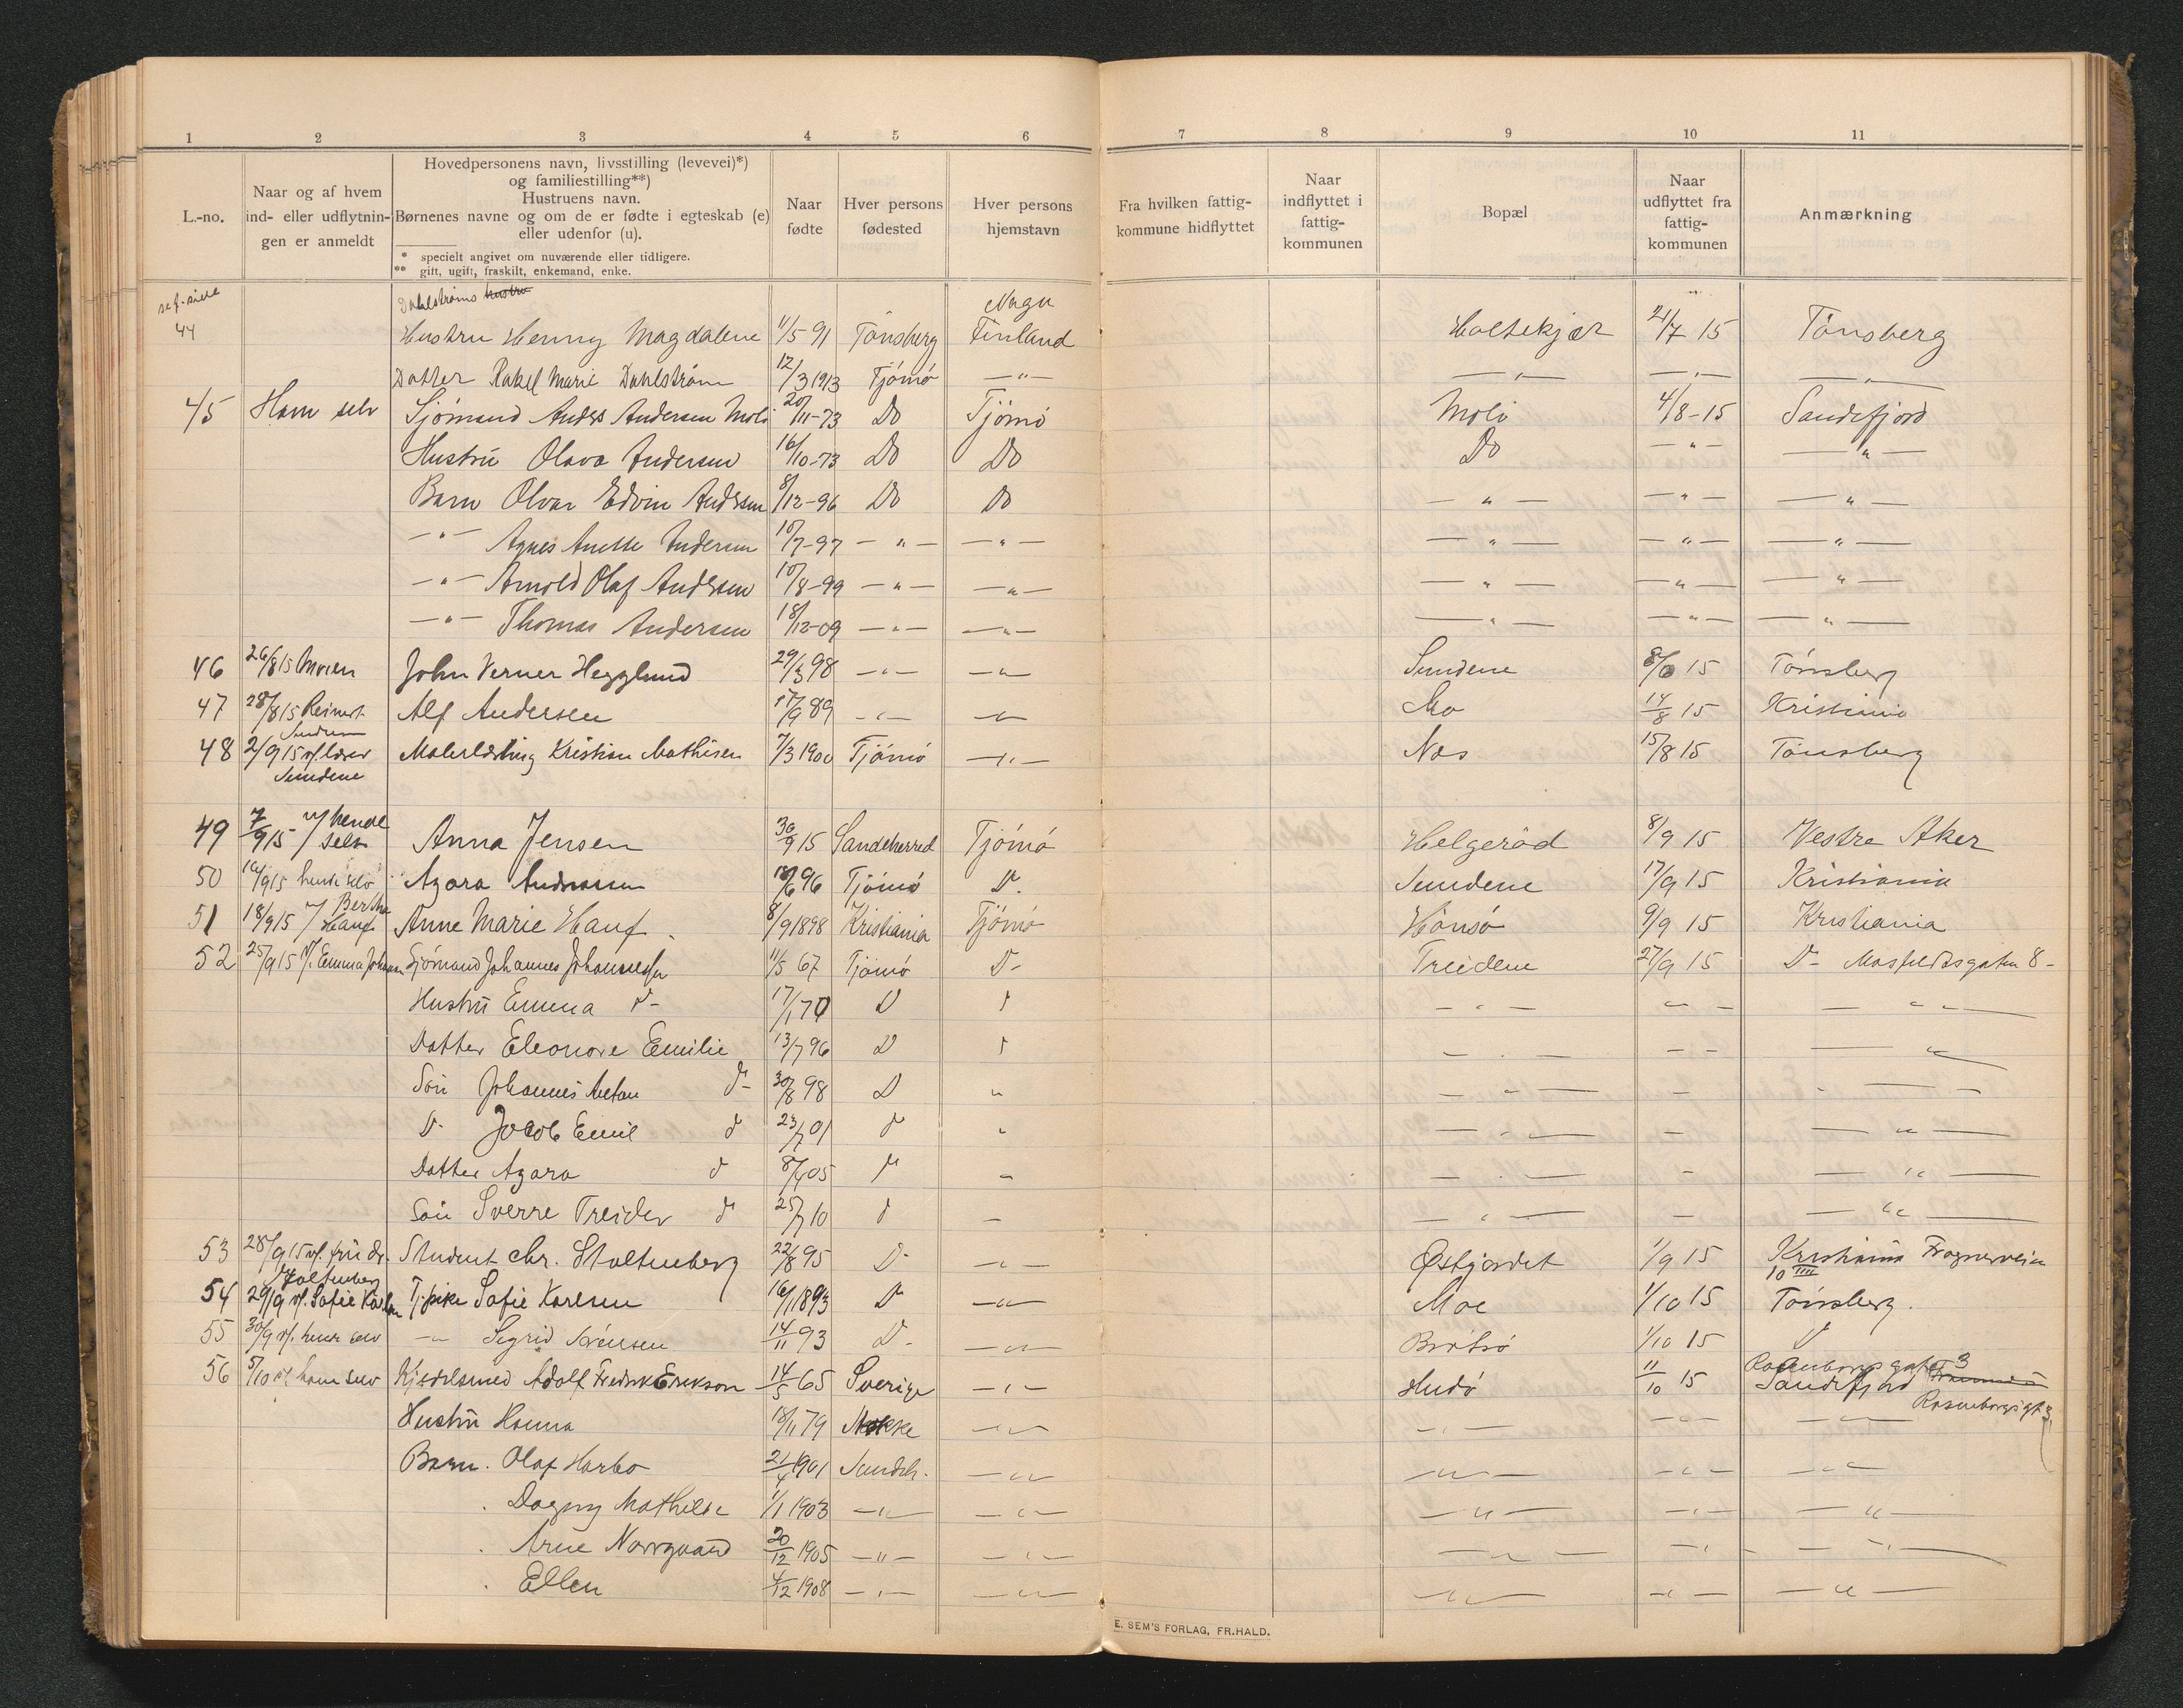 1 2 3 4 5 6 7 8 9 10 11
L.-no.
Naar og af hvem
ind- eller udflytnin-
gen er anmeldt
Hovedpersonens navn, livsstilling (levevei)*)
og familiestilling**)
Hustruens navn.
Børnenes navne og om de er fødte i egteskab (e)
eller udenfor (u).
* specielt angivet om nuværende eller tidligere.
** gift, ugift, fraskilt, enkemand, enke.
Naar
fødte
Hver persons
fødested
Hver persons
hjemstavn
Fra hvilken fattig-
kommune hidflyttet
Naar
indflyttet i
fattig-
kommunen
Bopæl
Naar
udflyttet fra
fattig-
kommunen
Anmærkning
Dahlstrøms hustru Nagu
44 Hustru Henny Magdalene 11/5 91 Tønsberg Finland Holtekjær 21/7 15 Tønsberg
Datter Rakel Marie Dahlström 12/3 1913 Tjömö —"— —"— —"— —"—
45 Ham selv Sjömand Anders Andersen Moli 20/11-73 Do Tjömö Moli 4/8-15 Sandefjord
Hustrü Olava Andersen 16/10-73 Do Do Do —"— —"—
Barn Olvar Edvin Andersen 8/12-96 Do Do —"— —"— —"—
—"— Agnes Anette Andersen 10/7-97 —"— —"— —"— —"— —"—
—"— Arnold Olaf Andersen 10/8-99 —"— —"— —"— —"— —"—
—"— Thomas Andersen 18/12-09 —"— —"— —"— —"— —"—
46 26/8 15 Moren John Verner Hegglund 29/3 98 —"— —"— Sundene 8/6 15 Tønsberg
47 28/8 15 Reinert Alf Andersen 17/9 89 —"— —"— Mo 14/8 15 Kristiania
48 2/9 15 Malerlærling Kristian Mathisen 7/3 1900 Tjömö —"— Næs 15/8 15 Tønsberg
Sundene
49 7/9 15 v/ hende selv Anna Jensen 30/9 15 Sandeherred Tjömö Helgeröd 8/9 15 Vestre Aker
50 16/9 15 hende selv Agara Andreassen 18/6 96 Tjömö D. Sundene 17/9 15 Kristiania
51 18/9 15 v/ Bertha Hauf Anne Marie Hauf 8/9 1898 Kristiania Tjömö Hönsö 9/9 15 Kristiania
52 25/9 15 v/. Emma Johansen Sjömand Johannes Johannessen 11/5 67 Tjömö D- Treidene 27/9 15 D- 8-
Hustrü Emma D- 17/1 70 D " —"— —"— —"—
Datter Eleonore Emilie 13/7 96 D " —"— — — —"—
Sön Johannes Anton D- 30/8 98 D " —"— — —"—
D- Jacob Emil d 23/7 01 d " —"— — —"—
Datter Agara d 8/4 05 d " —"— — —"—
Sön Sverre Treider d 25/7 10 d — —"— — —"—
53 28/9 15 v/. frü dr. Stoltenberg Student Chr. Stoltenberg 22/8 95 D- —"— Østjordet 1/9 15 Kristiania Frognerveien
10 IIII
54 29/9 v/. Sofie Karlsen Tj.pike Sofie Karlsen 16/1 1893 D —"— Moe 1/10 15 Tönsberg.
55 30/9 v/. hende selv —"— Sigrid Sørensen 14/11 93 D- —"— Brötsö 1/10 15 D
56 5/10 v/. ham selv Kjedelsmed Adolf Fredrik Erikson 14/5 65 Sverige —"— Hudö 11/10 15 Rosenborgs gate 3
Sandefjord
Rosenborgsgt 3
Hustrü Hanna 18/11 79 Stokke —"— —"— —"— —"—
Barn. Olaf Harbo 21/4 1901 Sandeh. —"— —"— —"— —"—
. Dagny Mathilde 1/1 1903 —"— —"— —"— —"— —"—
. Arne Norrgaard 20/12 1905 —"— —"— —"— —"— —"—
. Ellen 4/12 1908 —"— —"— —"— —"— —"—
E. SEM'S FORLAG, FR.HALD.